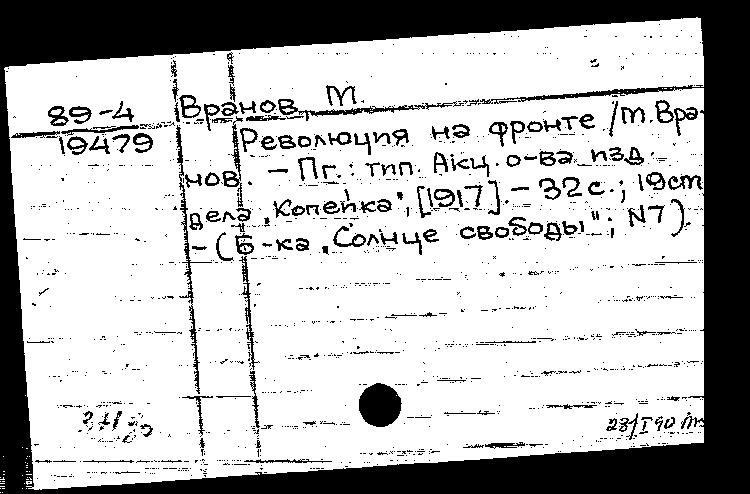 89-4
19479
Вранов, М.
Революция на фронте / М. Вра-
нов. – Пг.: тип. Акц. о-ва изд.
дела „Копейка", [1917]. – 32 с.; 19 см
– (Б-ка „Солнце свободы"; N7).
28/I 90